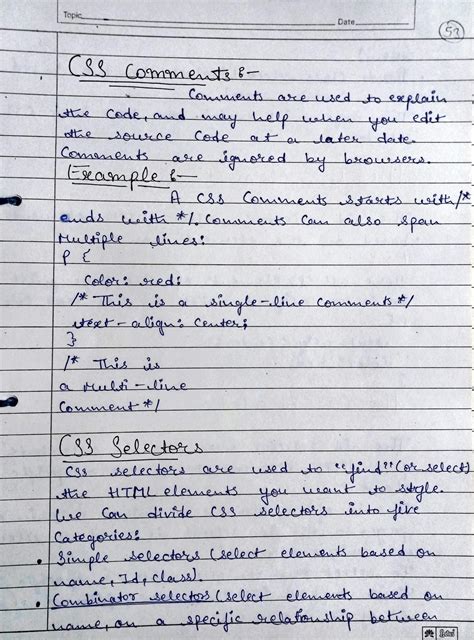 Topic
Date
53
CSS Comments :-
Comments are used to explain
the code, and may help when you edit
the source code at a later date.
Comments are ignored by browsers.
Example :-
A CSS Comments starts with /*
ends with */, Comments can also span
Multiple lines:
p {
color: red;
/* This is a single-line comments */
text-align: center;
}
/* This is
a multi-line
comment */
CSS Selectors
CSS selectors are used to "find" (or select)
the HTML elements you want to style.
We can divide CSS selectors into five
Categories:
• Simple selectors (select elements based on
name, Id, class).
• Combinator selectors (select elements based on
name, on a specific relationship between